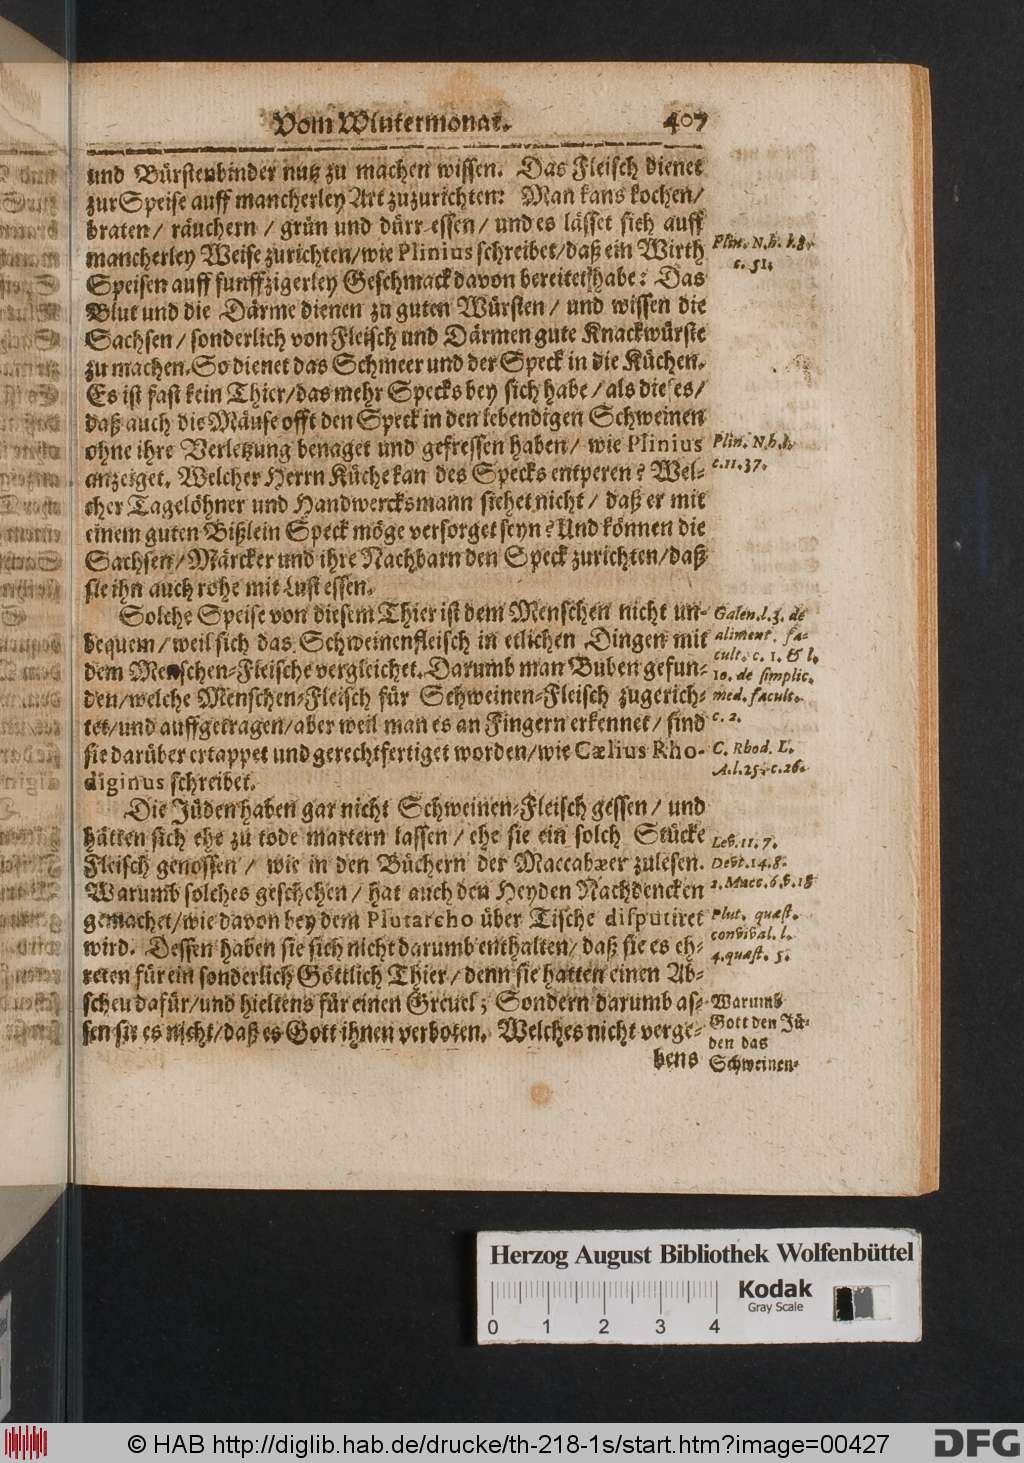 Vom Wintermonat. 407
und Bürstenbinder nutz zu machen wissen. Das Fleisch dienet
zur Speise auff mancherley Art zuzurichten: Man kans kochen/
braten/ räuchern / grün und dürr essen/ und es lässet sich auff
mancherley Weise zurichten/wie Plinius schreibet/daß ein Wirth
Speisen auff funffzigerley Geschmack davon bereitet habe: Das
Blut und die Därme dienen zu guten Würsten/ und wissen die
Sachsen/ sonderlich von Fleisch und Därmen gute Knackwürste
zu machen. So dienet das Schmeer und der Speck in die Küchen.
Es ist fast kein Thier/das mehr Specks bey sich habe/als dieses/
daß auch die Mäuse offt den Speck in den lebendigen Schweinen
ohne ihre Verletzung benaget und gefressen haben/ wie Plinius
anzeiget. Welcher Herrn Küche kan des Specks entperen? Wel-
cher Tagelöhner und Handwercksmann siehet nicht/ daß er mit
einem guten Bißlein Speck möge versorget seyn? Und können die
Sachsen/Märcker und ihre Nachbarn den Speck zurichten/daß
sie ihn auch rohe mit Lust essen.
Solche Speise von diesem Thier ist dem Menschen nicht un-
bequem/weil sich das Schweinenfleisch in etlichen Dingen mit
dem Menschen-Fleische vergleichet. Darumb man Buben gefun-
den/welche Menschen-Fleisch für Schweinen-Fleisch zugerich-
tet/und auffgetragen/aber weil man es an Fingern erkennet/ sind
sie darüber ertappet und gerechtfertiget worden/wie Cælius Rho-
diginus schreibet.
Die Jüden haben gar nicht Schweinen-Fleisch gessen/ und
hätten sich ehe zu tode martern lassen/ ehe sie ein solch Stücke
Fleisch genossen/ wie in den Büchern der Maccabæer zulesen.
Warumb solches geschehen/ hat auch den Heyden Nachdencken
gemachet/wie davon bey dem Plutarcho über Tische disputiret
wird. Dessen haben sie sich nicht darumb enthalten/ daß sie es eh-
reten für ein sonderlich Göttlich Thier/ denn sie hatten einen Ab-
scheu dafür/und hieltens für einen Greuel; Sondern darumb as-
sen sie es nicht/daß es Gott ihnen verboten. Welches nicht verge-
bens
Plin. N.h. l.8.
c. 51.
Plin. N.h.l.
c.11.37.
Galen.l.3. de
aliment. fa-
cult. c. 1. & l.
10. de simplic.
med. facult.
c. 2.
C. Rhod. L.
A.l.25.c.26.
Lev. 11. 7.
Deut. 14.8.
2. Macc.6.v.18
Plut. quæst.
convival. l.
4.quæst. 5.
Warumb
Gott den Jü-
den das
Schweinen-
Herzog August Bibliothek Wolfenbüttel
Kodak
Gray Scale
0 1 2 3 4
© HAB http://diglib.hab.de/drucke/th-218-1s/start.htm?image=00427
DFG